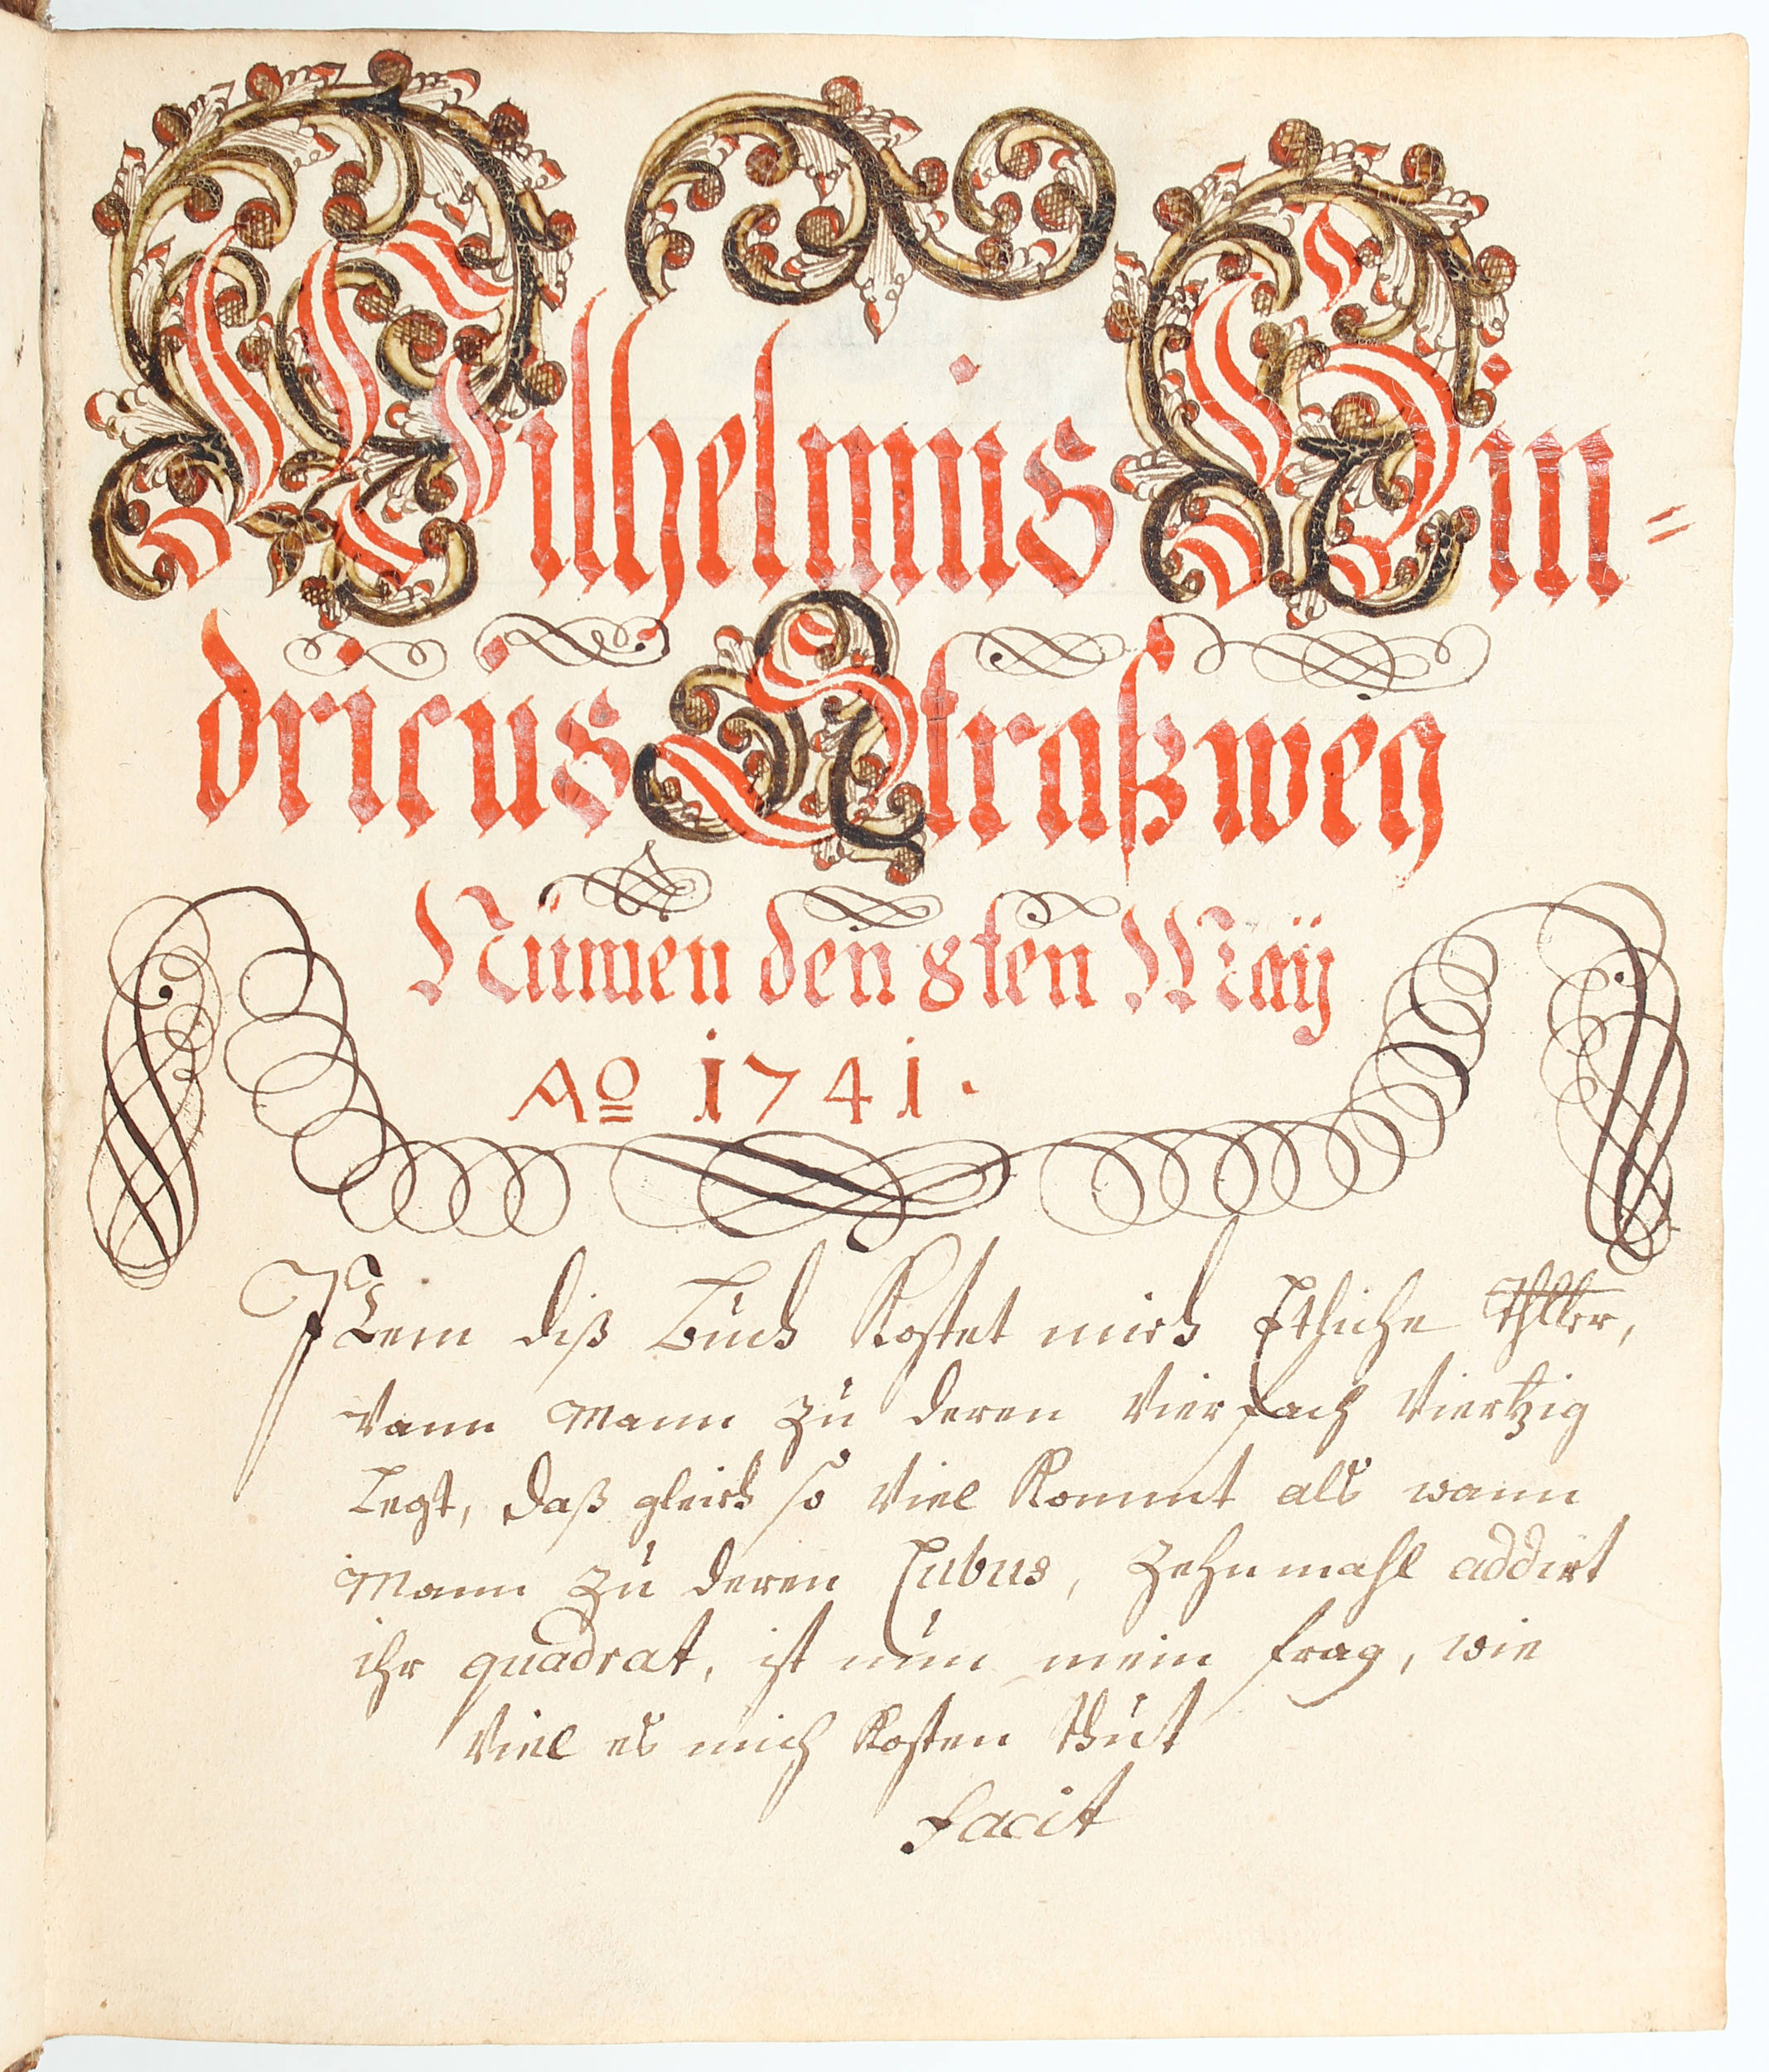 Wilhelmus Hin=
dricus Straßweg
Nümen den 8ten Maÿ
Ao 1741.
Item diß Buch Kostet mich Etliche Thller,
Wann Mann zu deren Vierfach Viertzig
Legt, daß gleich so Viel Kommt als wann
Mann zu deren Cubus, Zehnmahl addirt
ihr quadrat, ist nun mein frag, wie
Viel es mich Kosten thut
facit